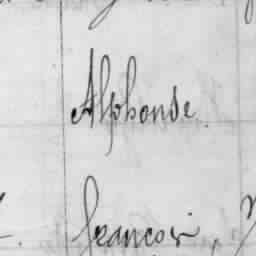 Alphonse.
francois,